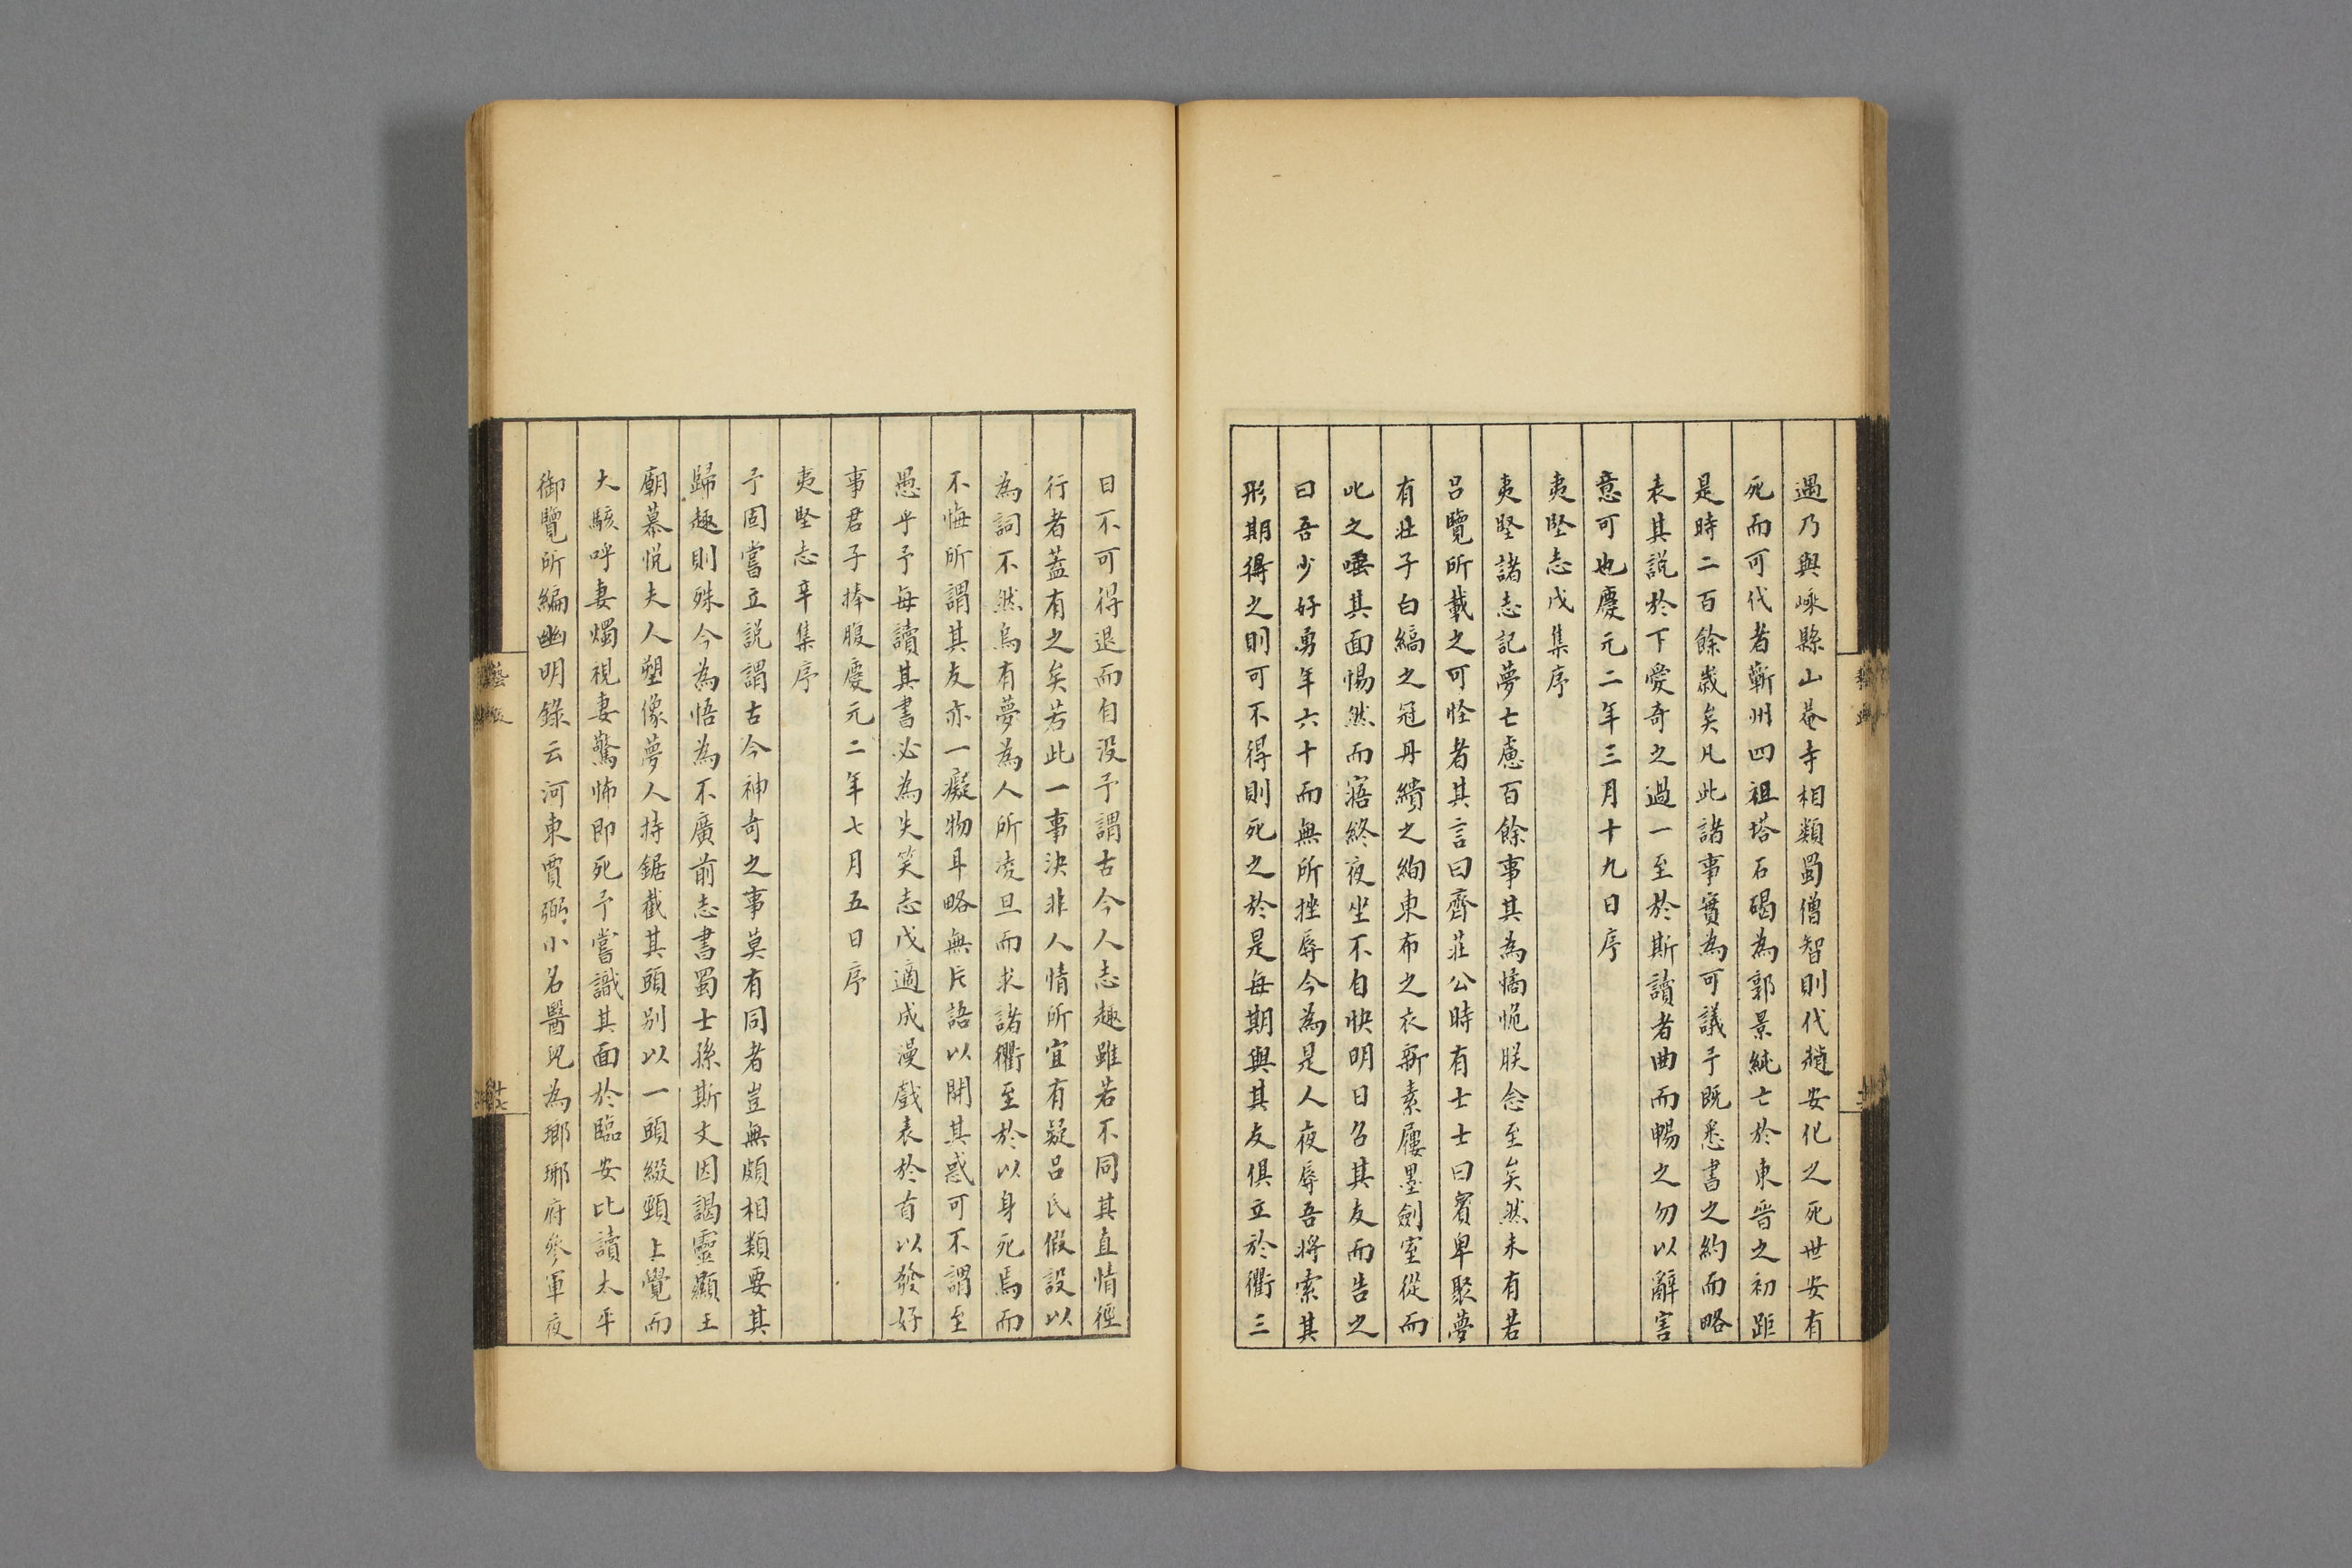 遇乃與嵊縣山菴寺相類蜀僧智則代趙安化之死世安有
死而可代者蘄州四祖塔石碣為郭景純亡於東晉之初距
是時二百餘歲矣凡此諸事實為可議予既悉書之約而略
表其説於下愛奇之過一至於斯讀者曲而暢之勿以辭害
意可也慶元二年三月十九日序
夷堅志戊集序
夷堅諸志記夢亡慮百餘事其為憰恑朕念至矣然未有若
呂覽所載之可怪者其言曰齊莊公時有士士曰賓卑聚夢
有壯子白縞之冠丹繢之絢東布之衣新素履墨劍室從而
叱之唾其面惕然而寤終夜坐不自快明日召其友而告之
曰吾少好勇年六十而無所挫辱今為是人夜辱吾將索其
形期得之則可不得則死之於是每期與其友俱立於衢三
日不可得退而自沒予謂古今人志趣雖若不同其直情徑
行者蓋有之矣若此一事決非人情所宜有疑呂氏假設以
為詞不然烏有夢為人所凌旦而求諸衢至於以身死焉而
不悔所謂其友亦一癡物耳略無片語以開其惑可不謂至
愚乎予每讀其書必為失笑志戊適成漫戲表於首以發好
事君子捧腹慶元二年七月五日序
夷堅志辛集序
予固嘗立説謂古今神奇之事莫有同者豈無頗相類要其
歸趣則殊今為悟為不廣前志書蜀士孫斯文因謁靈顯王
廟慕悦夫人塑像夢人持鋸截其頭別以一頭綴頸上覺而
大駭呼妻燭視妻驚怖即死予嘗識其面於臨安比讀太平
御覽所編幽明錄云河東賈弼小名醫兒為瑯琊府參軍夜